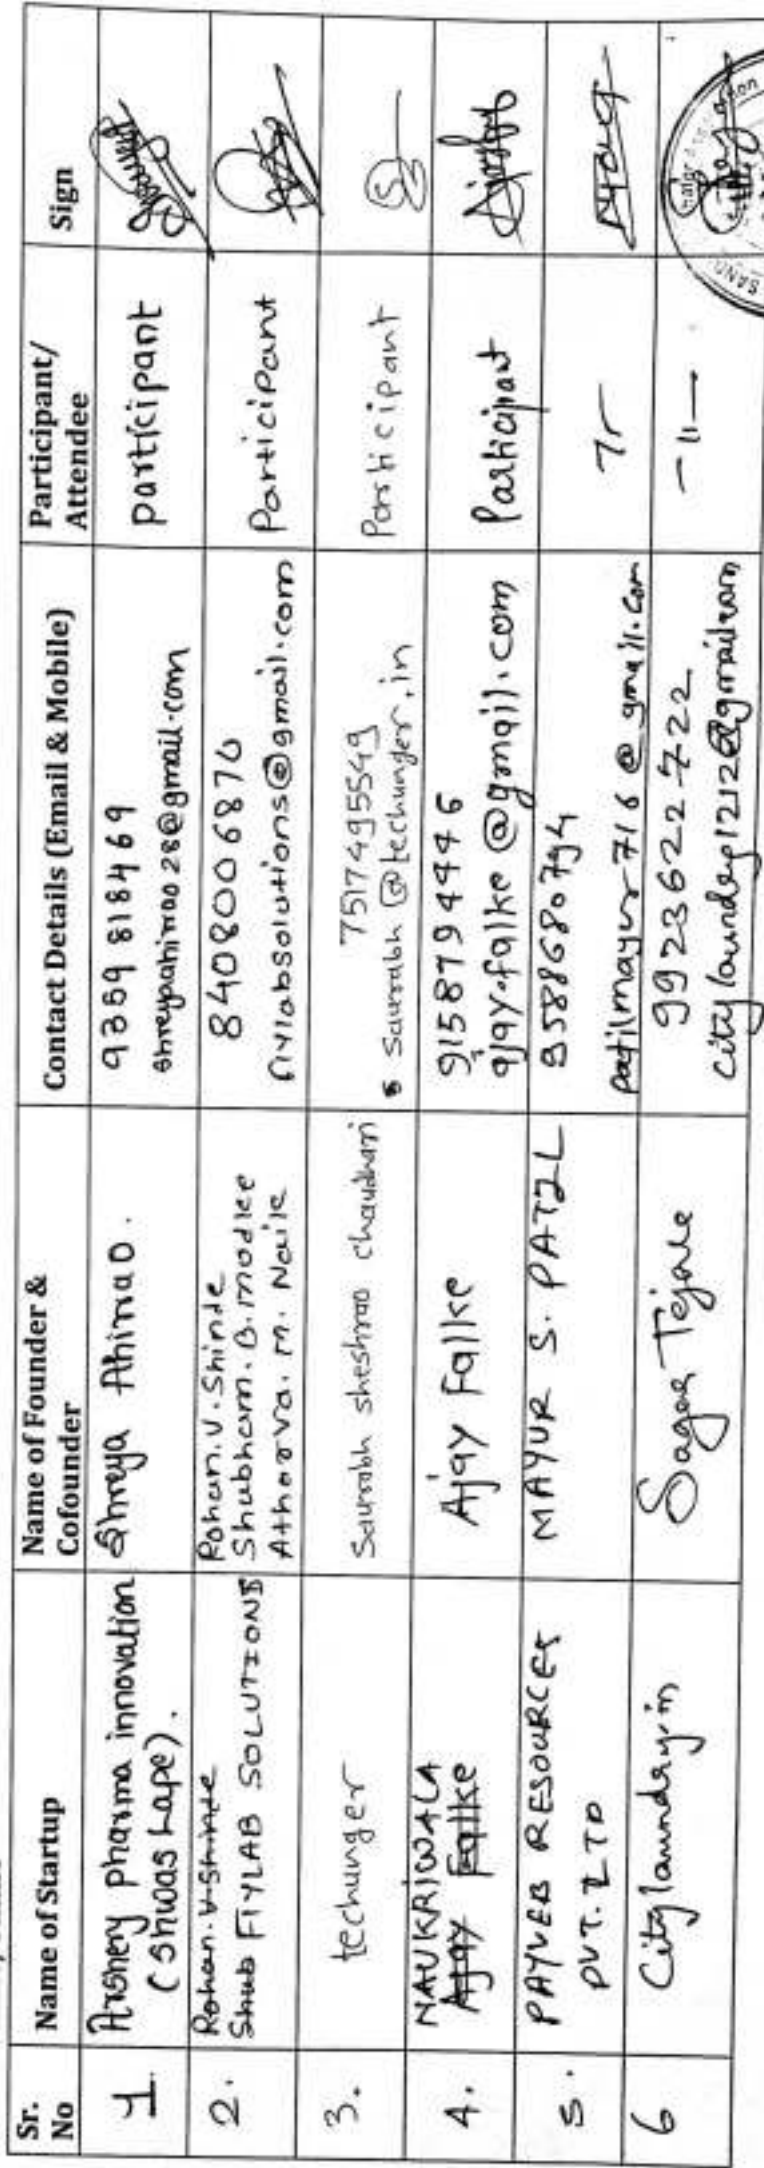 Sr. No
Name of Startup
Name of Founder & Cofounder
Contact Details (Email & Mobile)
Participant/ Attendee
Sign
1.
Arshery pharma innovation
(Shwas Lape).
Shreya Ahirrao.
9359818469
shreyaahirrao28@gmail.com
participant
2.
Rohan.V.Shinde
Shub FIYLAB SOLUTIONS
Rohan.V.Shinde
Shubham.B.modke
Atharva.M.Naik
8408006870
fiylabsolutions@gmail.com
Participant
3.
techunger
Saurabh sheshrao chaudhari
7517495549
saurabh@techunger.in
Participant
4.
NAUKRIWALA
Ajay Falke
Ajay Falke
9158794446
ajay.falke@gmail.com
Participant
5.
PAYVEB RESOURCES
PVT. LTD
MAYUR S. PATIL
9588680794
patilmayur716@gmail.com
6
Citylaundry.in
Sagar Tejale
9923622722
citylaundry1212@gmail.com
-11-